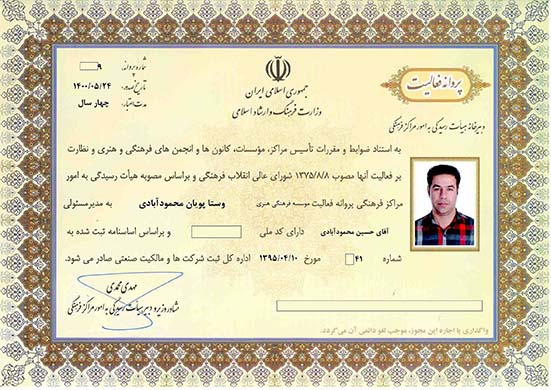 شماره پروانه: ۹
تاریخ تمدید: ۱۴۰۰/۰۵/۲۴
مدت اعتبار: چهار سال
جمهوری اسلامی ایران
وزارت فرهنگ و ارشاد اسلامی
پروانه فعالیت
دبیرخانه هیأت رسیدگی به امور مراکز فرهنگی
به استناد ضوابط و مقررات تأسیس مراکز، مؤسسات، کانون ها و انجمن های فرهنگی و هنری و نظارت
بر فعالیت آنها مصوب ۱۳۷۵/۸/۸ شورای عالی انقلاب فرهنگی و براساس مصوبه هیأت رسیدگی به امور
مراکز فرهنگی پروانه فعالیت موسسه فرهنگی هنری وستا پویان محمودآبادی به مدیرمسئولی
آقای حسین محمودآبادی دارای کد ملی و براساس اساسنامه ثبت شده به
شماره ۴۱ مورخ ۱۳۹۵/۰۴/۱۰ اداره کل ثبت شرکت ها و مالکیت صنعتی صادر می شود.
مهدی محمدی
مشاور وزیر و دبیر هیأت رسیدگی به امور مراکز فرهنگی
واگذاری یا اجاره این مجوز، موجب لغو دائمی آن می‌گردد.